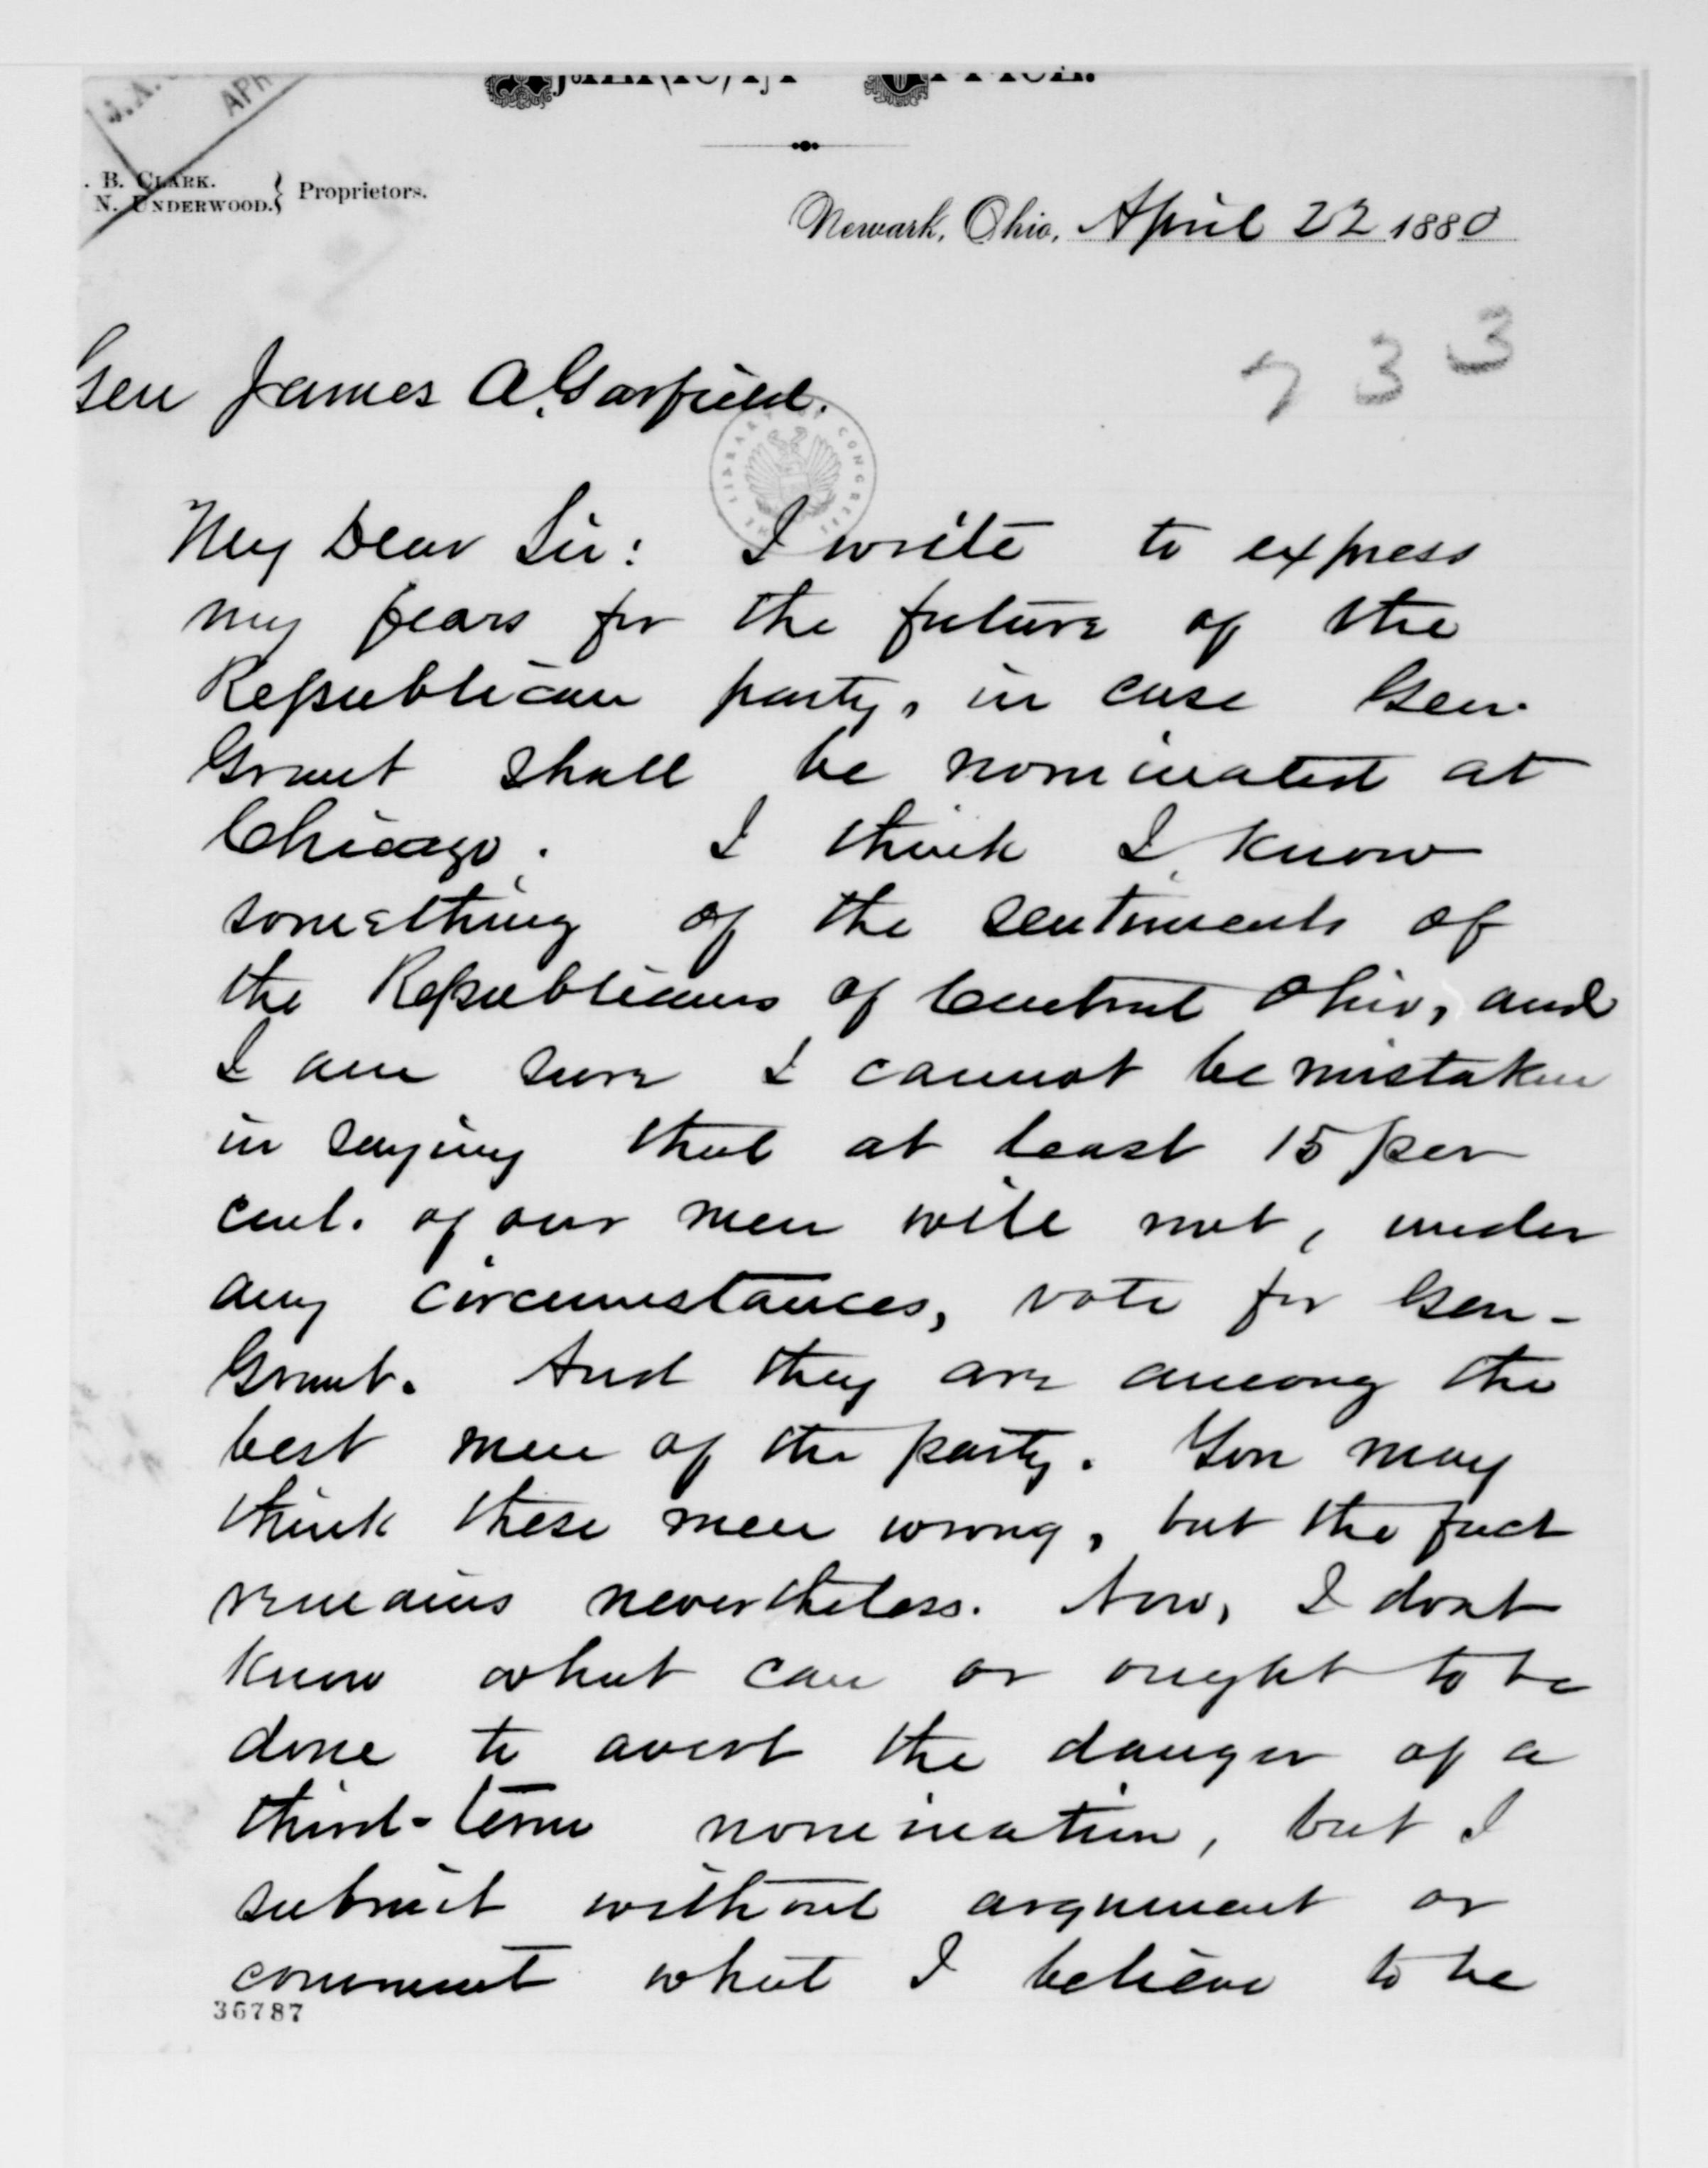 J.A.
APR
. B. CLARK.
N. UNDERWOOD.} Proprietors.
Newark, Ohio, April 22 1880
733
Gen James A. Garfield.
THE LIBRARY OF CONGRESS
My Dear Sir: I write to express
my fears for the future of the
Republican party, in case Gen.
Grant shall be nominated at
Chicago. I think I know
something of the sentiments of
the Republicans of Central Ohio, and
I am sure I cannot be mistaken
in saying that at least 15 per
cent. of our men will not, under
any circumstances, vote for Gen-
Grant. And they are among the
best men of the party. You may
think these men wrong, but the fact
remains nevertheless. Now, I dont
know what can or ought to be
done to avert the danger of a
third-term nomination, but I
submit without argument or
comment what I believe to be
36787